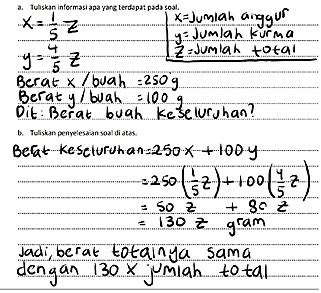 a. Tuliskan informasi apa yang terdapat pada soal.
x = 1/5 z
x = Jumlah anggur
y = Jumlah kurma
z = Jumlah total
y = 4/5 z
Berat x / buah = 250 g
Berat y / buah = 100 g
Dit : Berat buah keseluruhan?
b. Tuliskan penyelesaian soal di atas.
Berat keseluruhan = 250 x + 100 y
= 250 (1/5 z) + 100 (4/5 z)
= 50 z + 80 z
= 130 z gram
Jadi, berat totalnya sama
dengan 130 x jumlah total